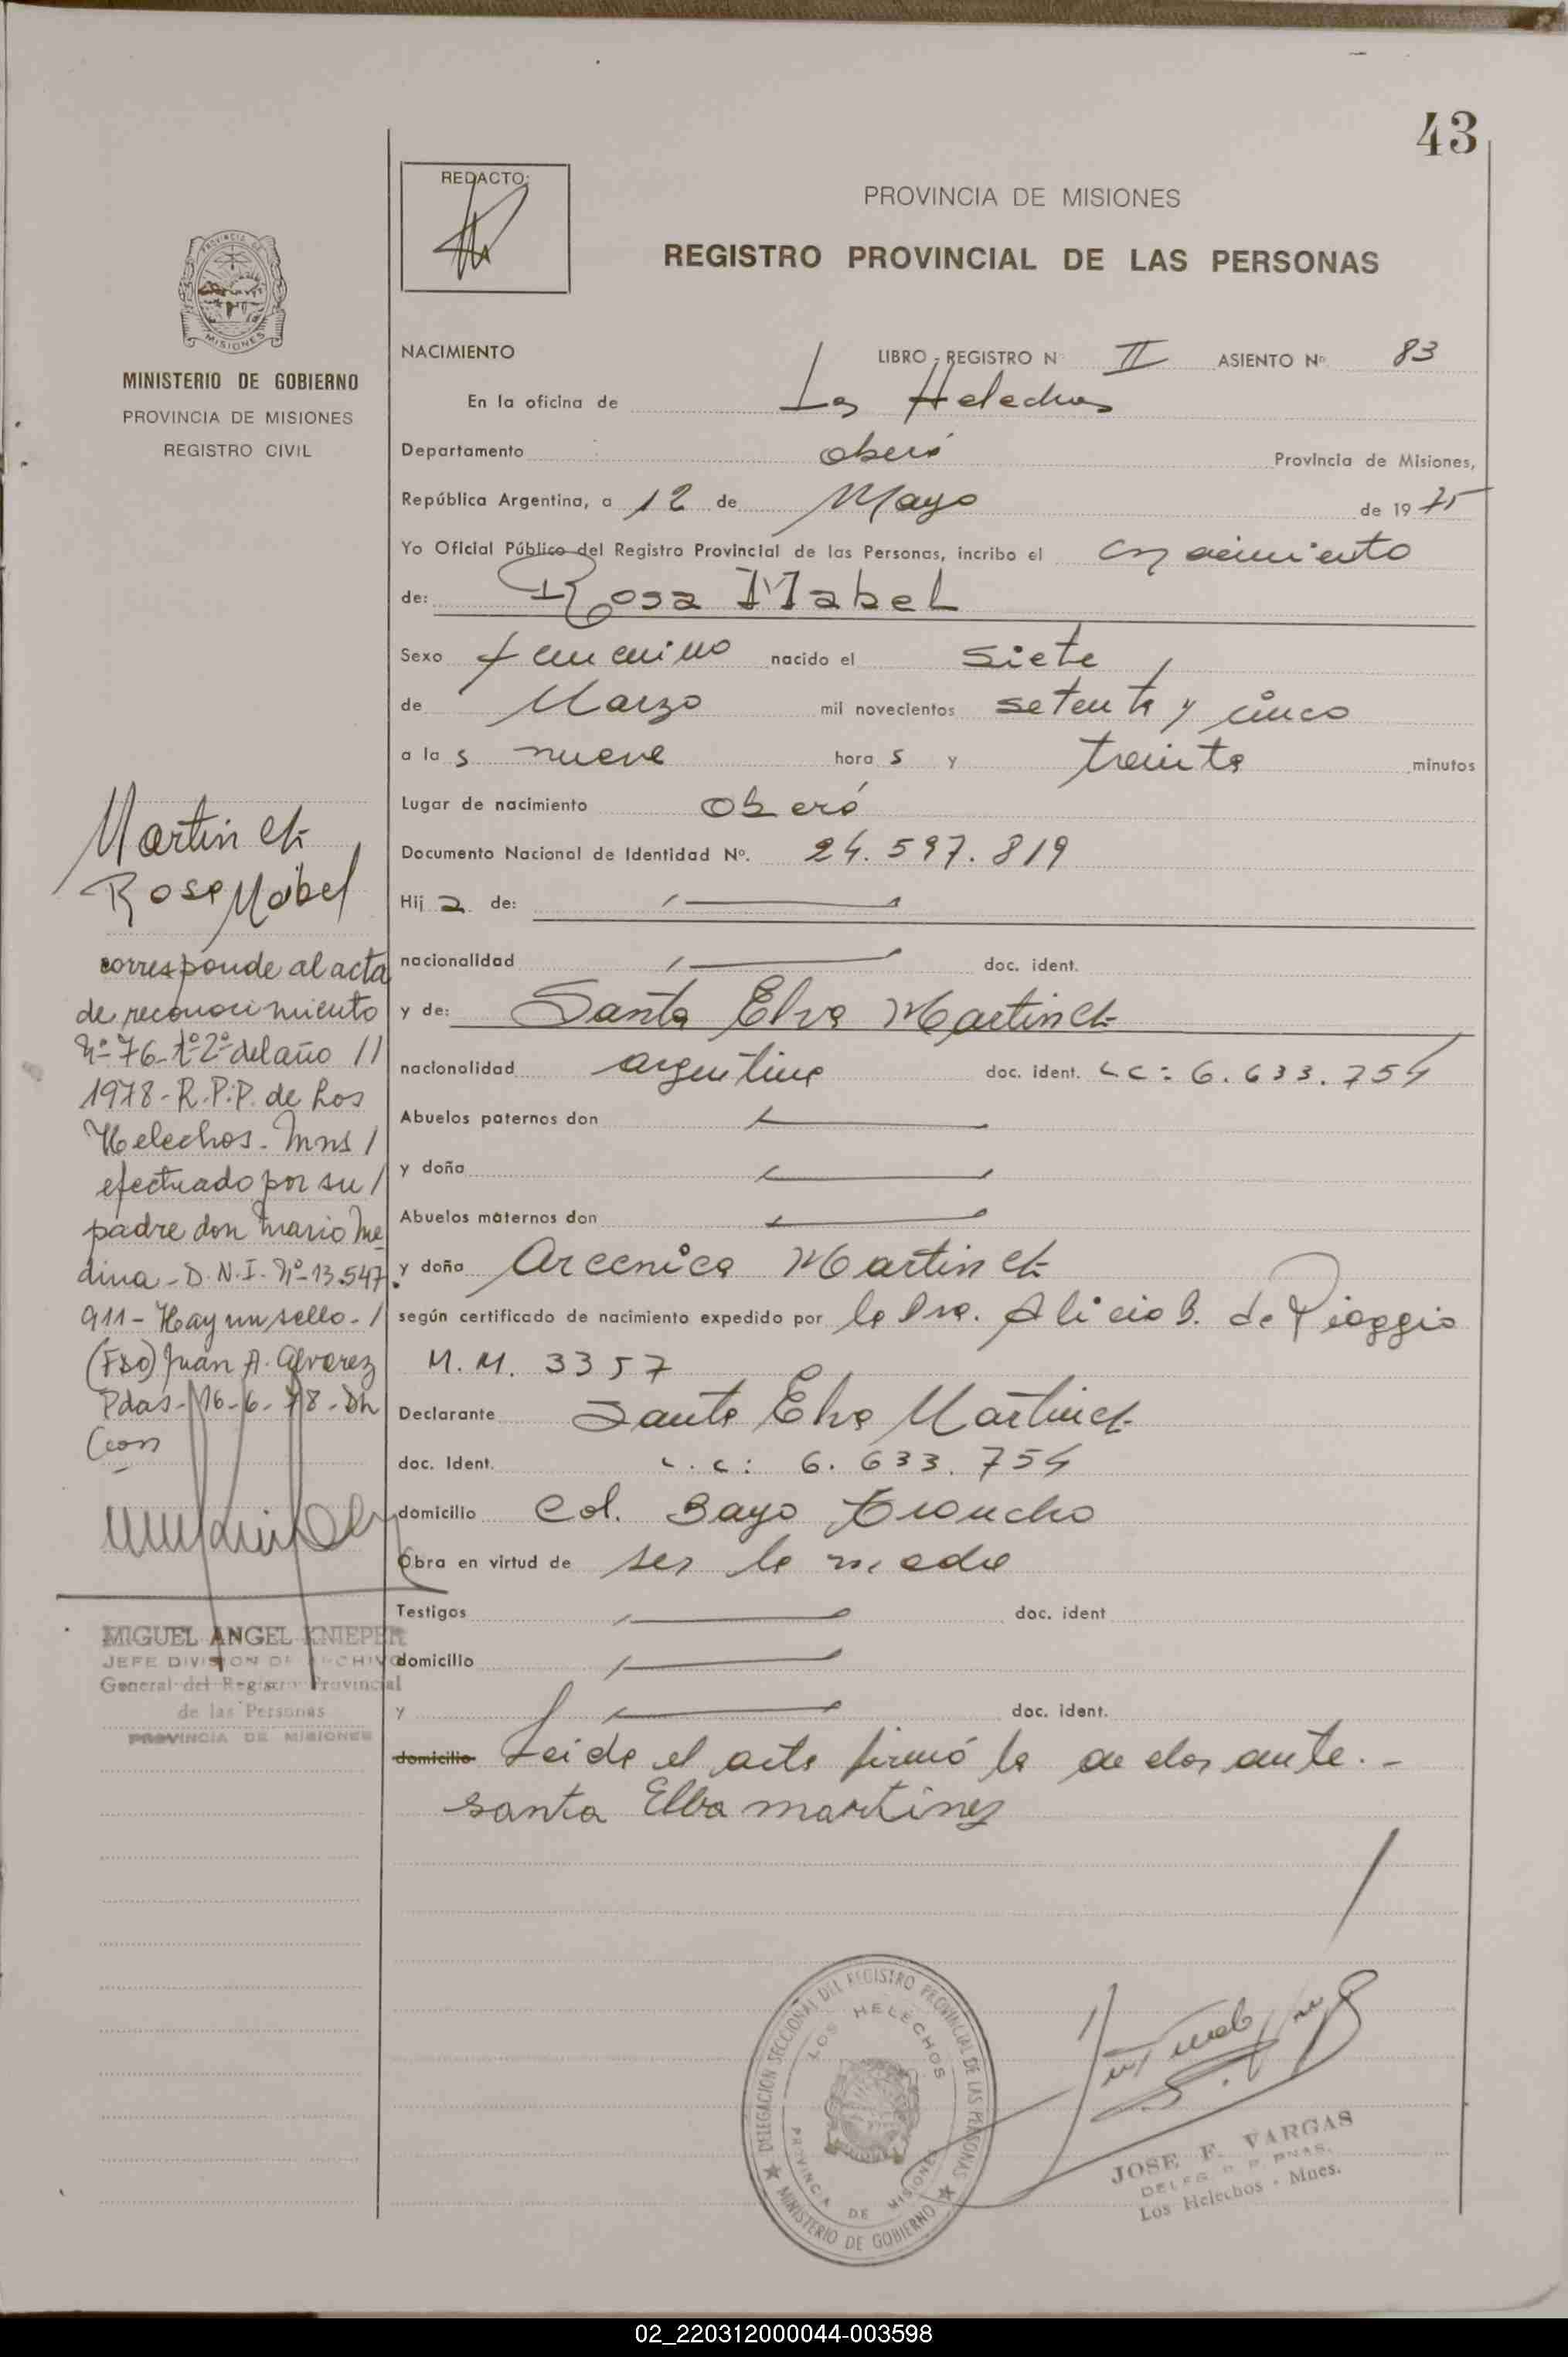 43
REDACTO:
PROVINCIA DE MISIONES
REGISTRO PROVINCIAL DE LAS PERSONAS
MISIONES
MINISTERIO DE GOBIERNO
PROVINCIA DE MISIONES
REGISTRO CIVIL
NACIMIENTO LIBRO - REGISTRO Nº II ASIENTO Nº 83
En la oficina de Los Helechos
Departamento Oberá Provincia de Misiones,
República Argentina, a 12 de Mayo de 1975
Yo Oficial Público del Registro Provincial de las Personas, incribo el nacimiento
de: Rosa Mabel
Sexo femenino nacido el siete
de Marzo mil novecientos setenta y cinco
a las nueve horas y treinta minutos
Lugar de nacimiento Oberá
Documento Nacional de Identidad Nº. 24.597.819
Hija de:
nacionalidad doc. ident.
y de: Santa Elva Martinez
nacionalidad argentina doc. ident. L C: 6.633.754
Abuelos paternos don
y doña
Abuelos maternos don
y doña Arcenica Martinez
según certificado de nacimiento expedido por la Dra. Alicia B. de Pioggio
M.M. 3357
Declarante Santa Elva Martinez
doc. Ident. L.C: 6.633.754
domicilio Col. Bayo Troncho
Obra en virtud de ser la madre
Testigos doc. ident
domicilio
y doc. ident.
domicilio Leida el acta firmó la declarante.-
santa Elba martinez
Martinez
Rosa Mabel
corresponde al acta
de reconocimiento
Nº 76-tº2º del año //
1978-R.P.P. de Los
Helechos-Mns/
efectuado por su/
padre don Mario Me
dina-D.N.I.Nº-13.547.
911-Hay un sello-/
(Fdo) Juan A. Alvarez
Pdas-16-6-78-
MIGUEL ANGEL KNIEPER
JEFE DIVISION DE ARCHIVO
General del Registro Provincial
de las Personas
PROVINCIA DE MISIONES
DELEGACION SECCIONAL DEL REGISTRO PROVINCIAL DE LAS PERSONAS
LOS HELECHOS
PROVINCIA DE MISIONES
MINISTERIO DE GOBIERNO
JOSE F. VARGAS
DELEG R. P. PNAS.
Los Helechos - Mnes.
02_220312000044-003598